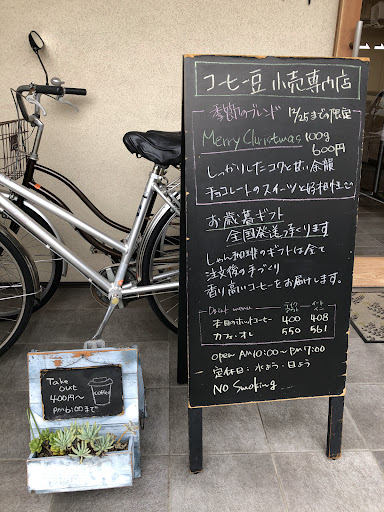 コーヒー豆 小売専門店
季節のブレンド 12/25までの限定
Merry Christmas 100g
600円
しっかりしたコクと甘い余韻
チョコレートのスイーツと好相性◎
お歳暮ギフト
全国発送も承ります
しゃん珈琲のギフトは全て
注文後の手づくり
香り高いコーヒーをお届けします。
Drink menu テイクアウト イートイン
本日のホットコーヒー 400 408
カフェ・オレ 550 561
open AM10:00〜PM7:00
定休日：水よう・日よう
No Smoking
Take out
400円〜
PM6:00まで
coffee